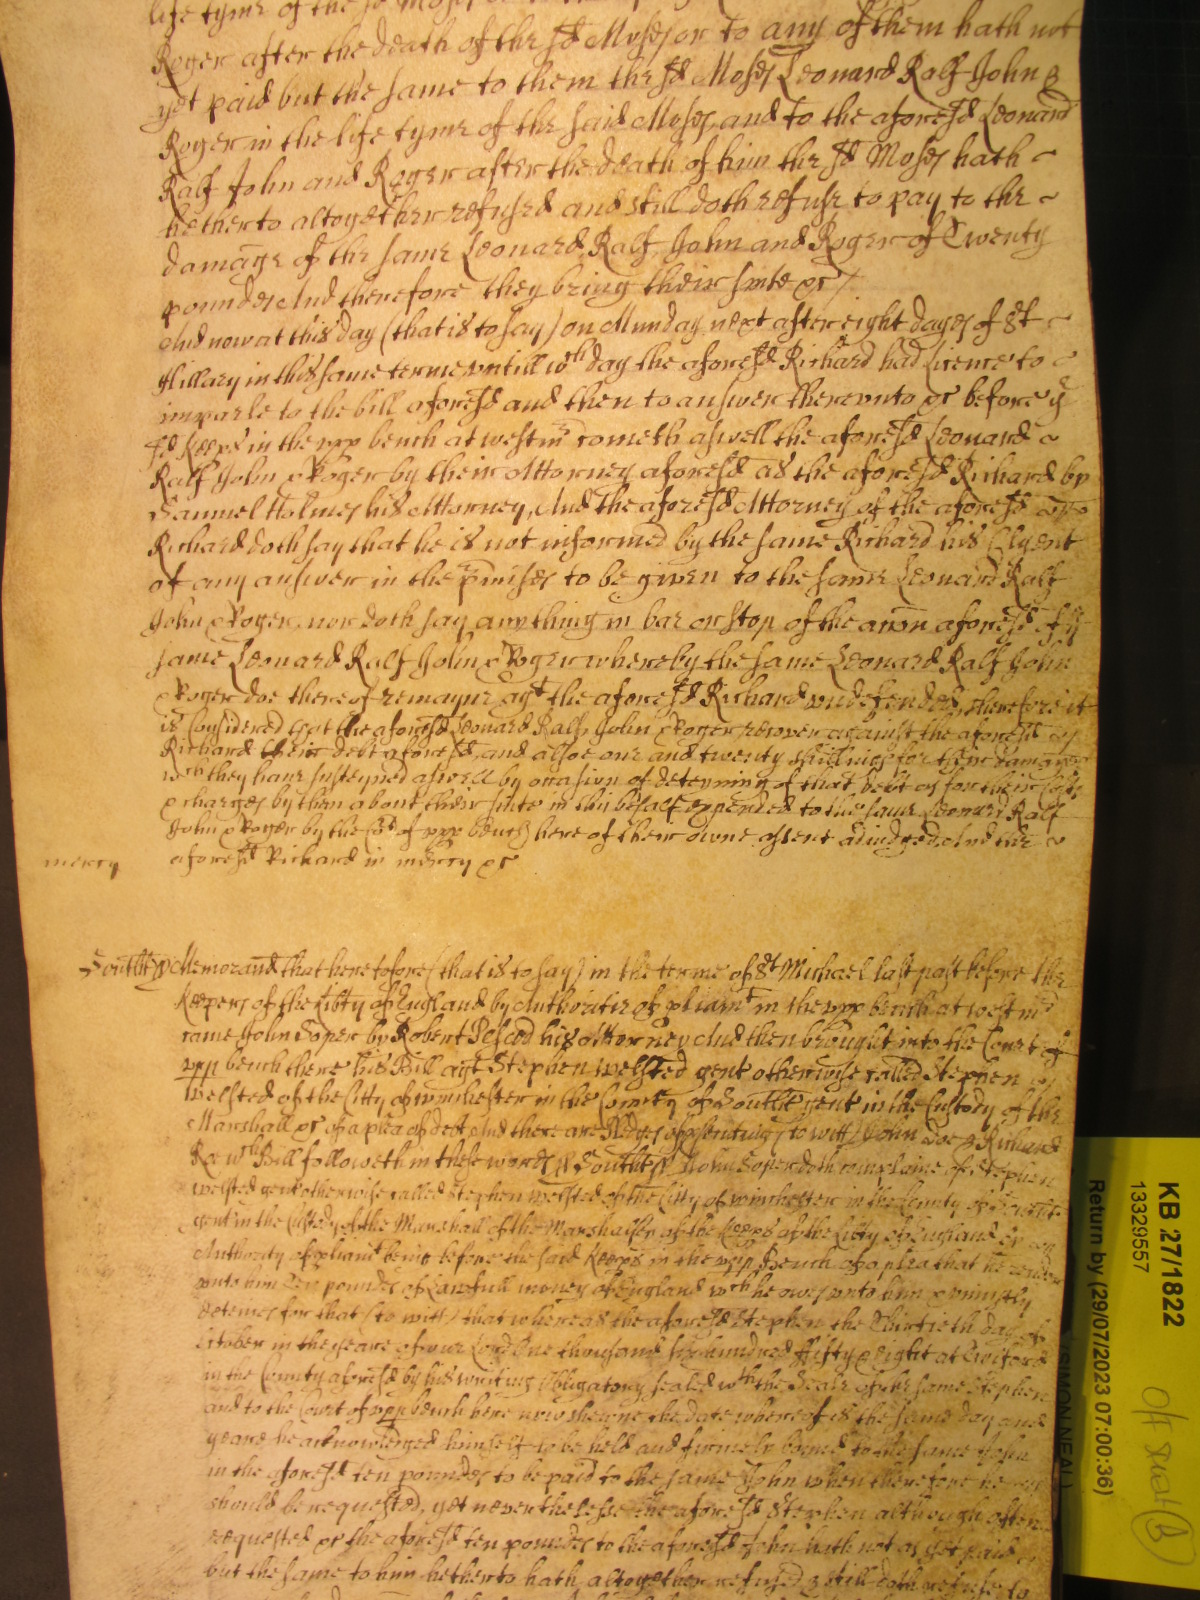 life tyme of the sd Moses or to
Roger after the death of the sd Moses or to any of them hath not
yet paid but the same to them the sd Moses Leonard Ralf John &
Roger in the life tyme of the said Moses, and to the aforesd Leonard
Ralf John and Roger after the death of him the sd Moses hath
hetherto altogether refused and still doth refuse to pay to the
damage of the same Leonard, Ralf, John and Roger of Twenty
poundes And therefore they bring their suite &c /
And now at this day (that is to say) on Munday next after eight dayes of St
Hillary in this same terme untill wch day the aforesd Richard had licence to
imparle to the bill aforesd and then to answer thereunto &c before ye
sd Keeps in the upp bench at westmr cometh aswell the aforesd Leonard
Ralf John & Roger by their Attorney aforesd as the aforesd Richard by
Samuel Holmes his Attorney, And the aforesd Attorney of the aforesd
Richard doth say that he is not informed by the same Richard his Clyent
of any answer in the pmises to be given to the same Leonard Ralf
John & Roger, nor doth say any thing in bar or stop of the accon aforesd of ye
same Leonard Ralf John & Roger whereby the same Leonard Ralf John
& Roger doe thereof remayne agt the aforesd Richard undefended, therefore it
is Considered that the aforesd Leonard Ralf John & Roger recover against the aforesd
Richard their debt aforesd, and alsoe one and twenty shillings for their damages
wch they have susteyned aswell by occasion of deteyning of that debt as for their costs
& charges by them about their suite in this behalf expended to the same Leonard Ralf
John & Roger by the Cort of upp bench here of their owne assent adiudged, And the
mercy aforesd Richard in mercy &c
Southt ss Memorand that heretofore (that is to say) in the terme of St Michael last past before the
Keepers of the Libty of England by Authoritie of pliamt in the upp bench at westmr
came John Soper by Robert Pescod his Attorney And then brought into the Court of ye
upp bench there his Bill agt Stephen welsted gent otherwise called Stephen
welsted of the Citty of winchester in the County of Southt gent in the Custody of the
Marshall &c of a plea of debt And there are Pledges of psenting (to witt) John Doe & Richard
Roe wch Bill followeth in these words ss Southt ss John Soper doth complaine of Stephen
welsted gent otherwise called Stephen welsted of the Citty of winchester in the County of Southt
gent in the Custody of the Marshall of the Marshalsea of the Keeps of the Libty of England by
Authority of pliamt being before the said Keeps in the upp Bench of a plea that he render
unto him Ten poundes of Lawfull money of England wch he owes unto him & uniustly
deteines for that (to witt) that whereas the aforesd Stephen the Thirtieth day of
October in the yeare of our Lord One thousand six hundred fifty & eight at Twiford
in the County aforesd by his writing obligatory sealed wth the Seale of the same Stephen
and to the Court of upp bench here now shewne the date whereof is the same day and
yeare, he acknowledged himself to be held and firmely bound to the same John
in the aforesd ten poundes to be paid to the same John when thereof he
should be requested, yet neverthelesse the aforesd Stephen although often
requested &c the aforesd ten poundes to the aforesd John hath not as yet paid
but the same to him hetherto hath altogether refused & still doth refuse to
KB 27/1822
13329557
Return by (29/07/2023 07:00:36)
SIMON NEAL